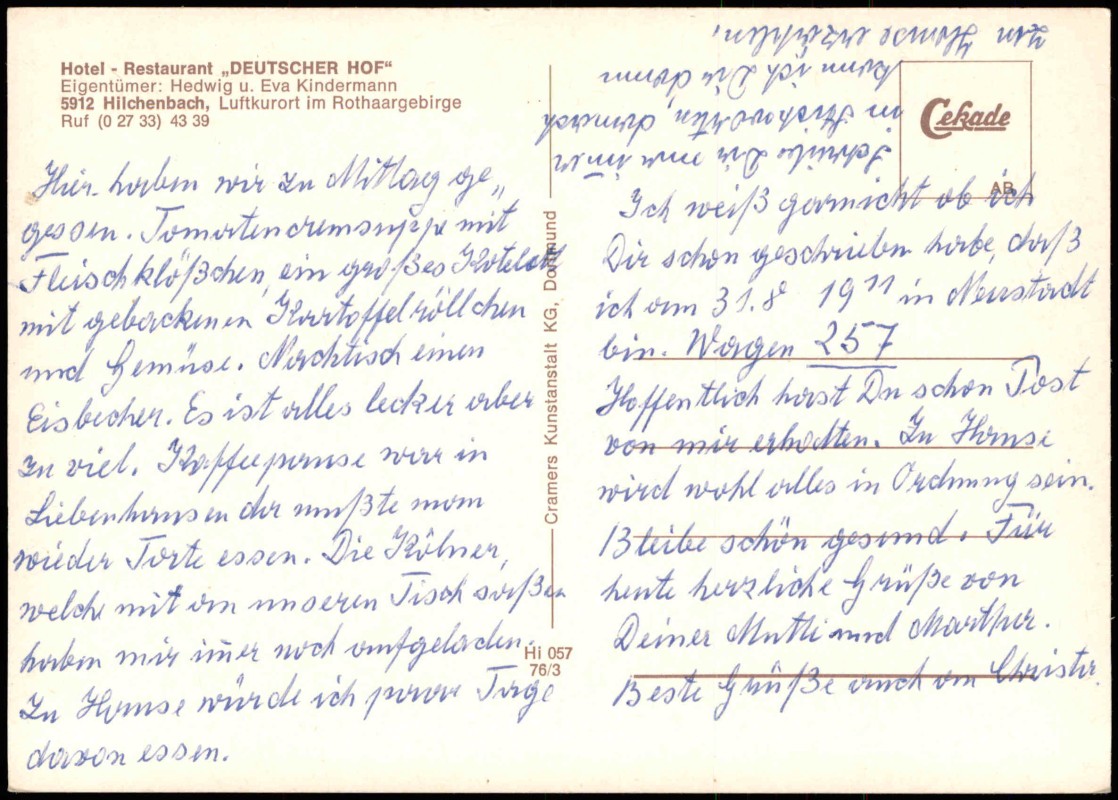 Hotel - Restaurant „DEUTSCHER HOF“
Eigentümer: Hedwig u. Eva Kindermann
5912 Hilchenbach, Luftkurort im Rothaargebirge
Ruf (0 27 33) 43 39
Hier haben wir zu Mittag ge„
gessen. Tomatencremsuppe mit
Fleischklößchen, ein großes Kotelett
mit gebackenen Kartoffelröllchen
und Gemüse. Nachtisch einen
Eisbecher. Es ist alles lecker aber
zu viel. Kaffeepause war in
Liebenhausen da mußte man
wieder Torte essen. Die Kölner,
welche mit an unseren Tisch saßen
haben mir im̄er noch aufgeladen.
Zu Hause würde ich paar Tage
davon essen.
Cramers Kunstanstalt KG, Dortmund
Hi 057
76/3
Cekade
AB
Ich weiß garnicht ob ich
Dir schon geschrieben habe, daß
ich am 31.8 19 11 in Neustadt
bin. Wagen 257
Hoffentlich hast Du schon Post
von mir erhalten. Zu Hause
wird wohl alles in Ordnung sein.
Bleibe schön gesund. Für
heute herzliche Grüße von
Deiner Mutti und Marthar.
Beste Grüße auch an Christa.
Schreibe Dir nun im̄er
in Stichworten, danach
kann ich Dir dann
zu Hause erzählen.